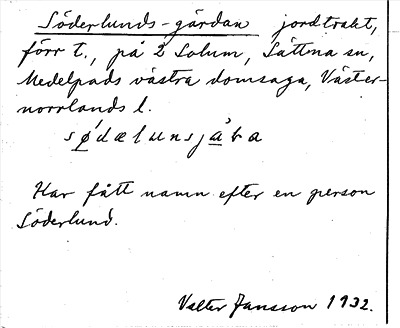 Söderlunds-gärdan jordtrakt,
förr t., på 2 Solum, Sättna sn,
Medelpads västra domsaga, Väster-
norrlands l.
Har fått namn efter en person
Söderlund.
Valter Jansson 1932.